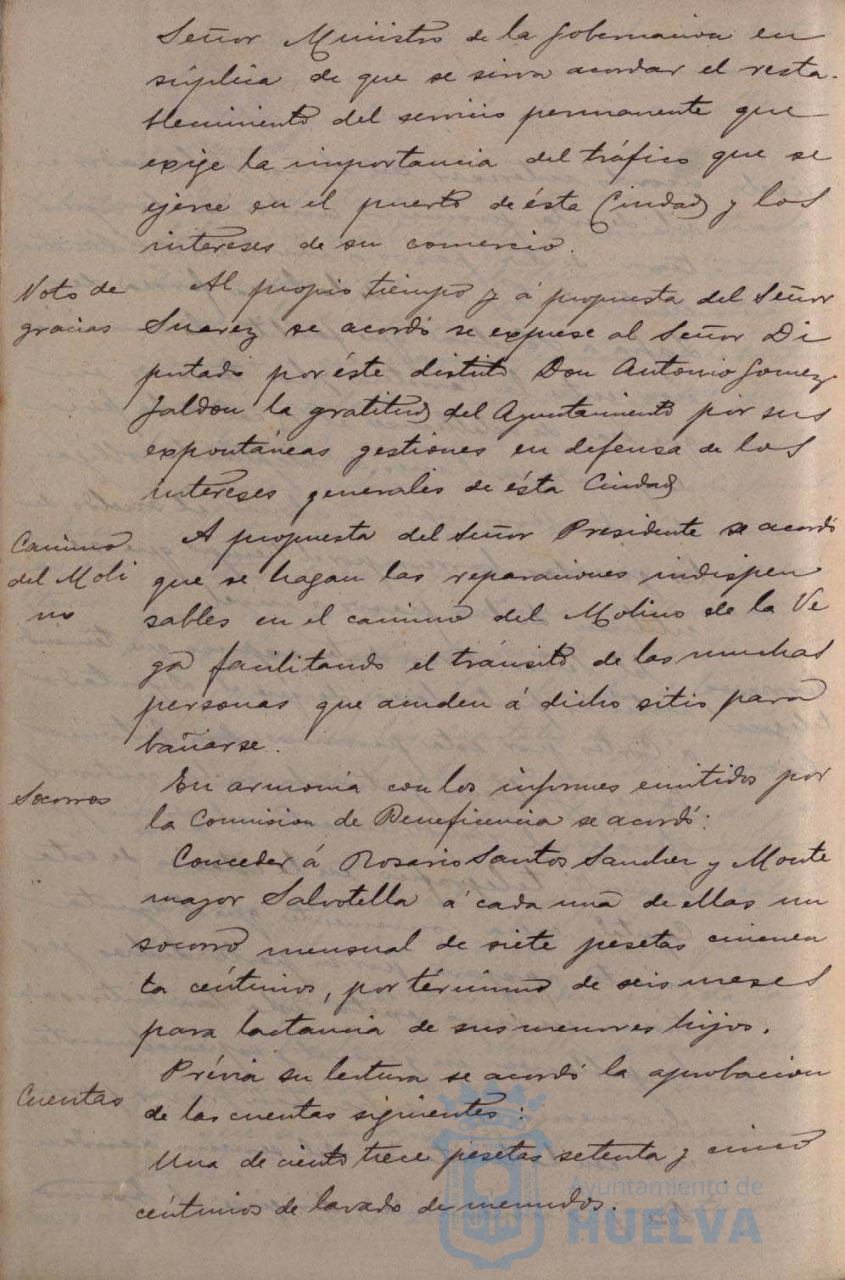 Señor Ministro de la Gobernacion en
súplica de que se sirva acordar el resta-
blecimiento del servicio permanente que
exige la importancia del tráfico que se
ejerce en el puerto de ésta Ciudad y los
intereses de su comercio.
Voto de
gracias
Al propio tiempo y á propuesta del Señor
Suarez se acordó se exprese al Señor Di
putado por éste distrito Don Antonio Gomez
Jaldon la gratitud del Ayuntamiento por sus
expontáneas gestiones en defensa de los
intereses generales de ésta Ciudad
Camino
del Moli
no
A propuesta del Señor Presidente se acordó
que se hagan las reparaciones indispen
sables en el camino del Molino de la Ve
ga facilitando el tránsito de las muchas
personas que acuden á dicho sitio para
bañarse.
Socorros
En armonia con los informes emitidos por
la Comision de Beneficencia se acordó:
Conceder á Rosario Santos Sanchez y Monte
mayor Salvotella á cada una de ellas un
socorro mensual de siete pesetas cincuen
ta céntimos, por término de seis meses
para lactancia de sus menores hijos.
Cuentas
Prévia su lectura se acordó la aprobacion
de las cuentas siguientes:
Una de ciento trece pesetas setenta y cinco
céntimos de lavado de menudos.
Ayuntamiento de
HUELVA